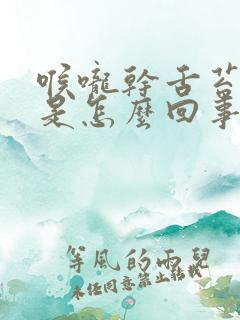 喉嚨幹舌苔
是怎麼回事
等風的雨兒
未經同意禁止轉載